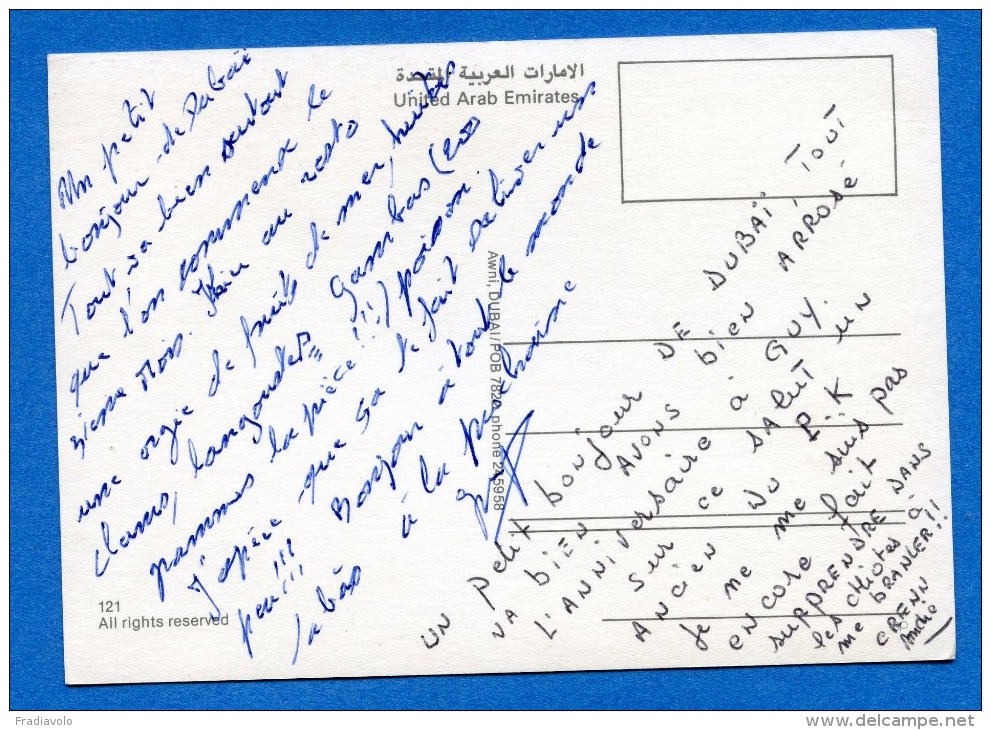 الامارات العربية المتحدة
United Arab Emirates
Un petit
bonjour de Dubaï
Tout va bien surtout
que l'on commence le
3ième mois. Hier au resto
une orgie de fruits de mer, huitres
clams, langoustes, Gambas (20
pammes la pièce!!!) poisson.
J'espère que sa te fait saliver un
peu!!! Bonjour à tout le monde
là bas à la prochaine
Guy
Awni, DUBAI/POB 7820 phone 245958
UN petit bonjour DE DUBAÏ, TOUT
VA bien AVONS bien ARROSÉ
L'ANNIVERSAIRE à GUY.
sur ce SALUT UN
ANCIEN DU P.K
Je ne me suis pas
encore fait
surprendre DANS
les chiotes à
me BRANLER!!
CRENN
André
121
All rights reserved
Fradiavolo
www.delcampe.net